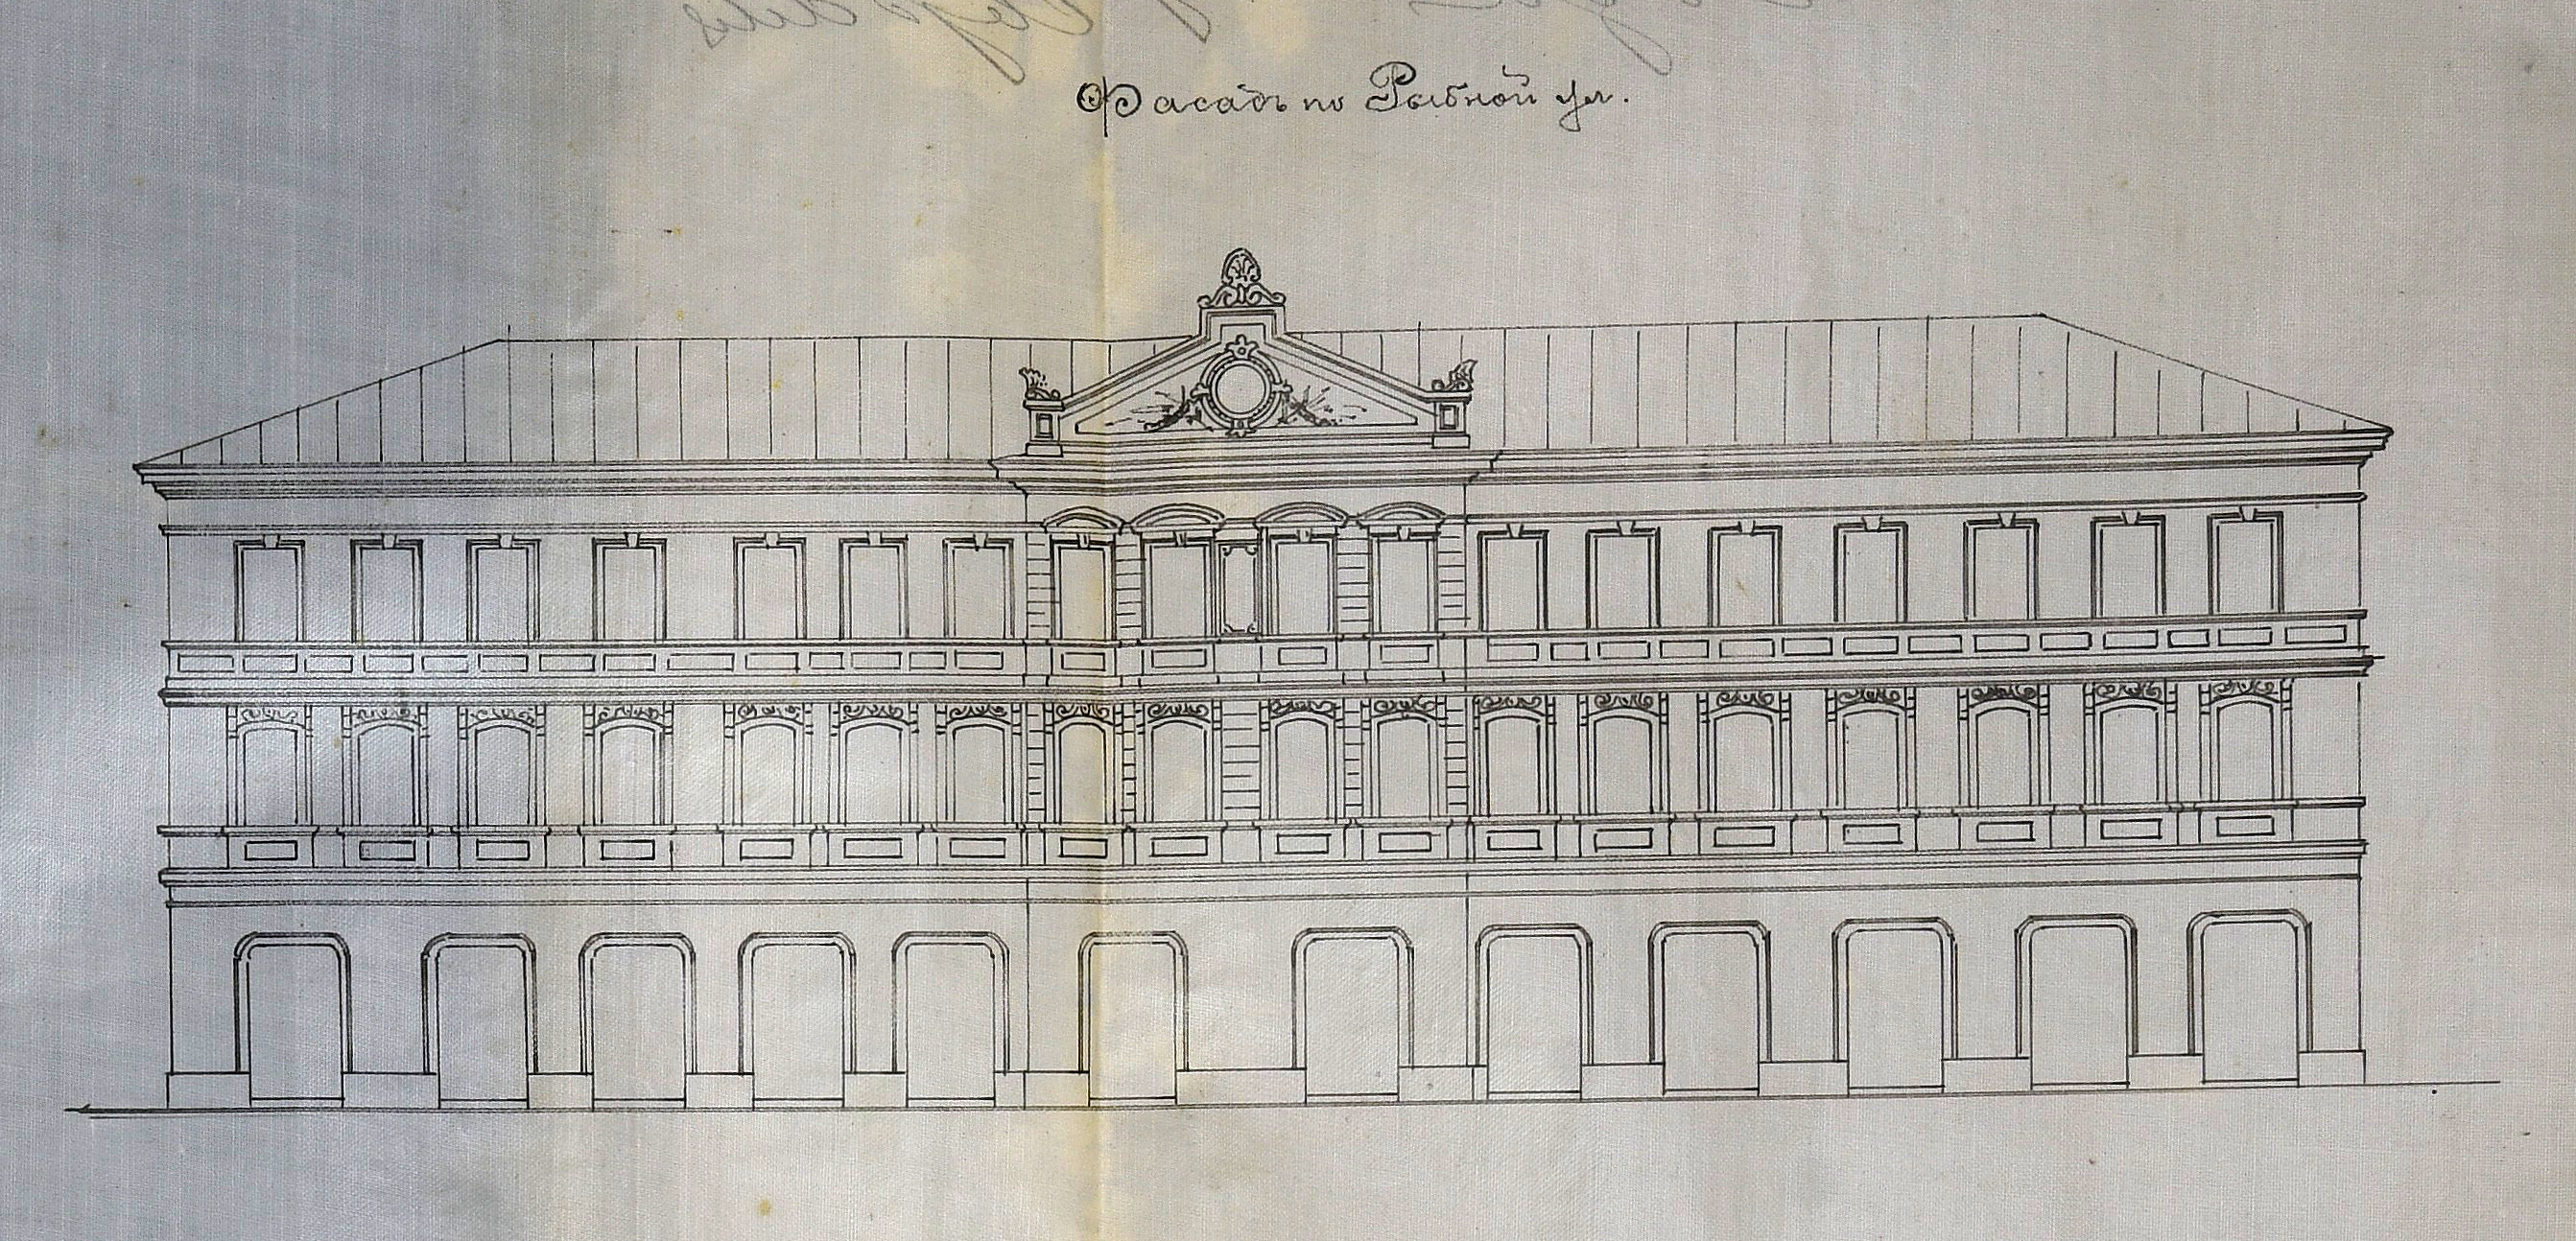 Фасадъ по Рыбной ул.